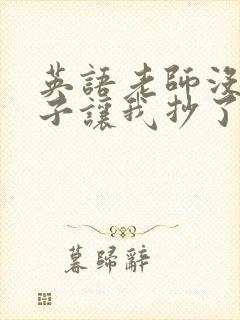 英語老師沒
子讓我抄了
暮歸辭